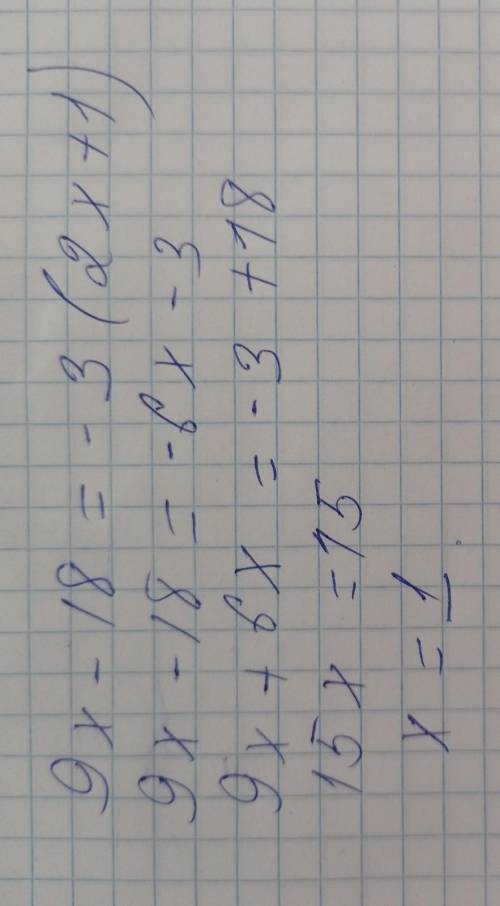 9x - 18 = - 3 (2x + 1)
9x - 18 = - 6x - 3
9x + 6x = - 3 + 18
15x = 15
x = 1